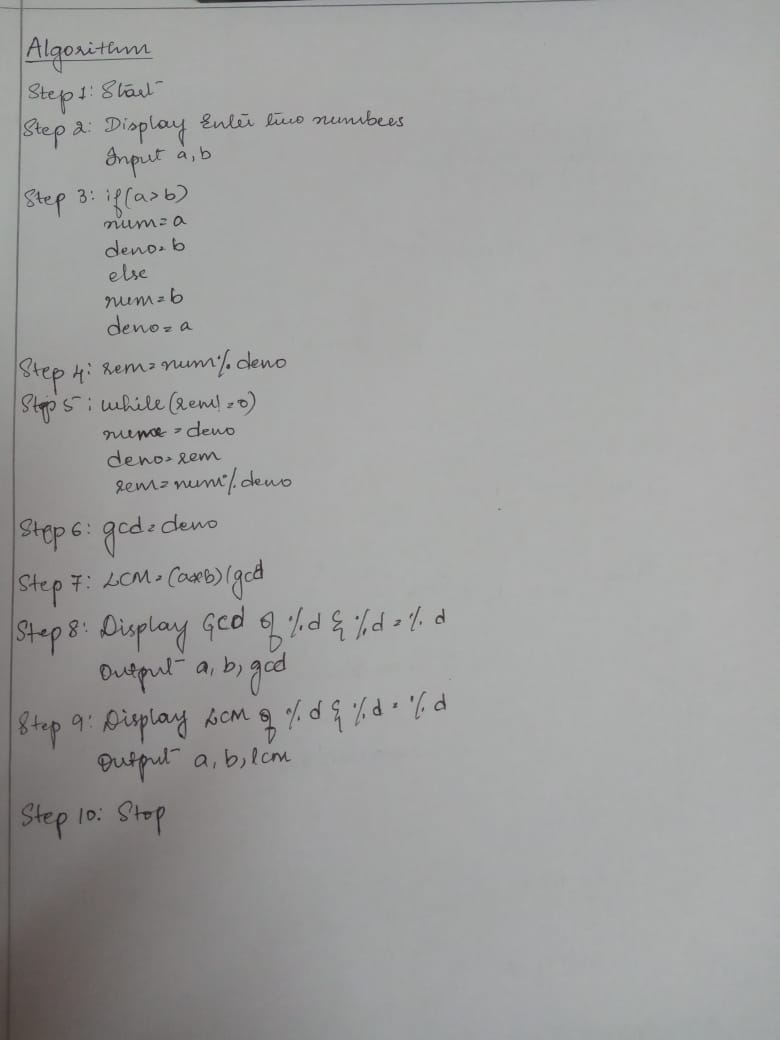 Algorithm
Step 1: Start
Step 2: Display Enter two numbers
Input a, b
Step 3: if(a>b)
num=a
deno=b
else
num=b
deno=a
Step 4: rem=num%deno
Step 5: while(rem!=0)
num=deno
deno=rem
rem=num%deno
Step 6: gcd=deno
Step 7: LCM=(a*b)/gcd
Step 8: Display Gcd of %d & %d=%d
Output a, b, gcd
Step 9: Display LCM of %d & %d=%d
Output a, b, lcm
Step 10: Stop